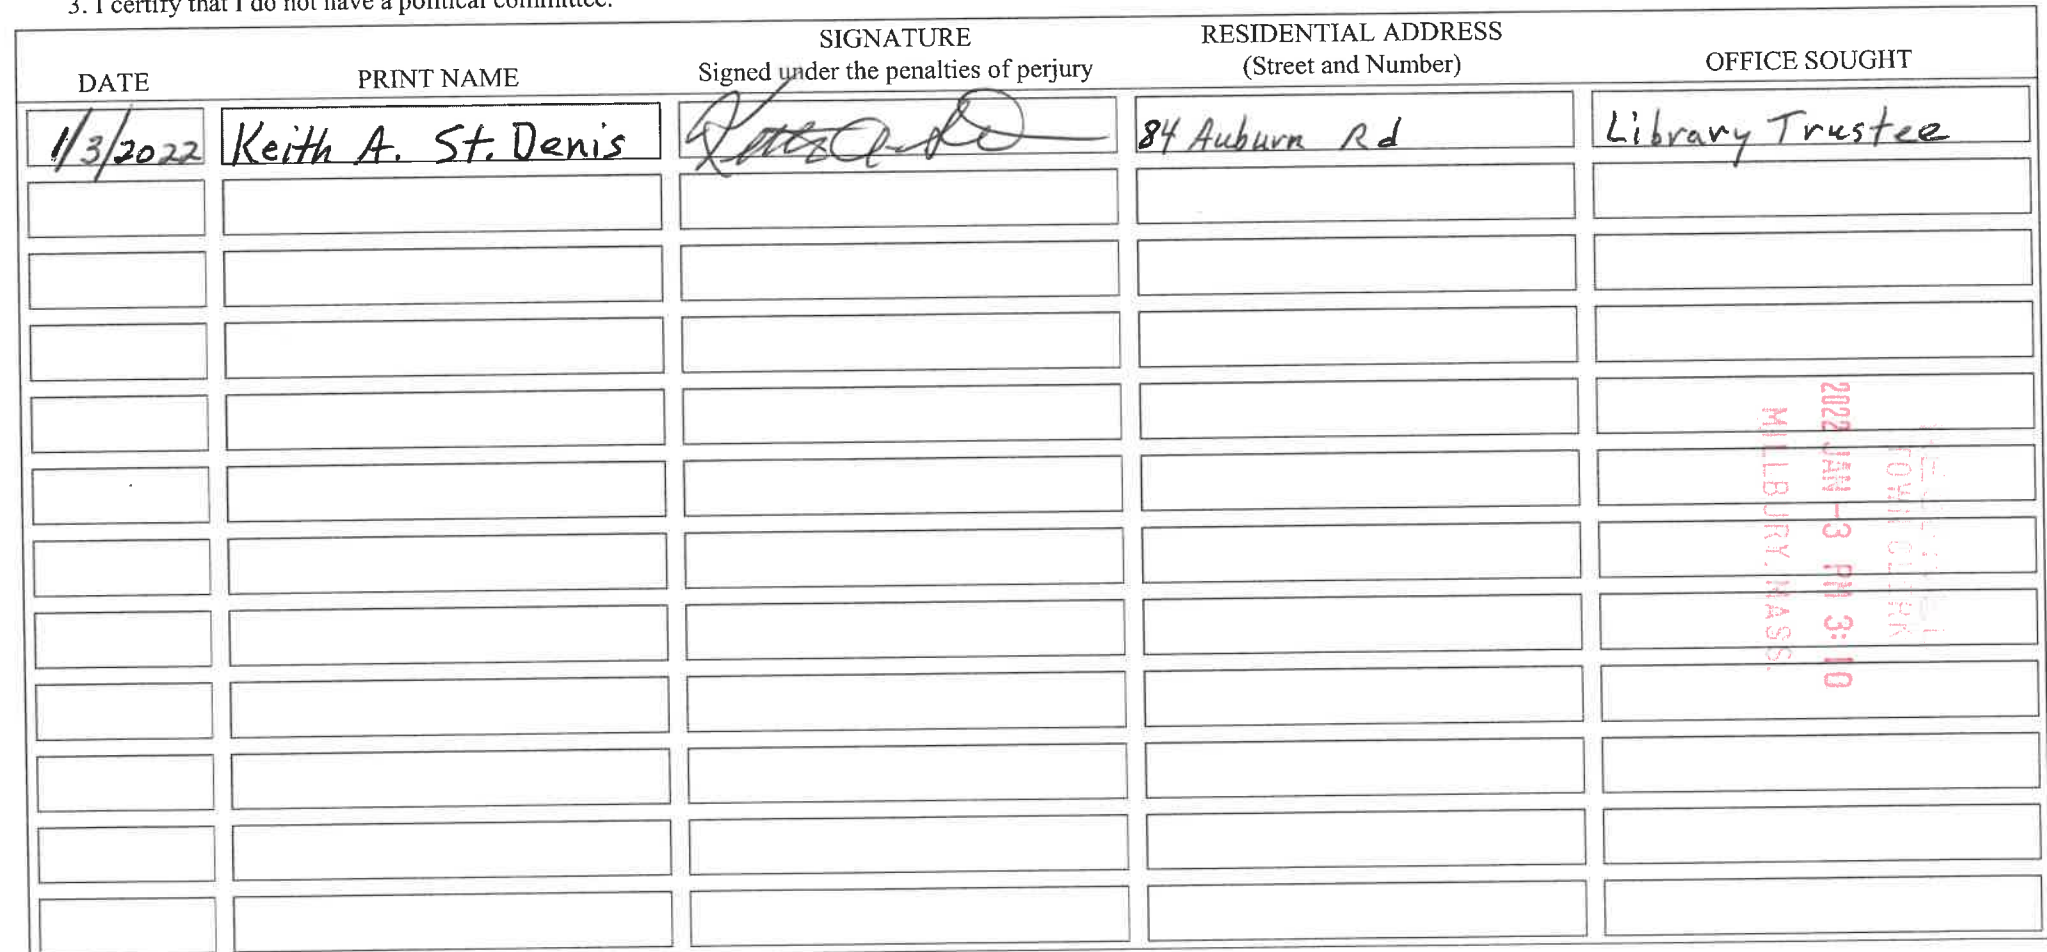 3. I certify that I do not have a political committee.
DATE
PRINT NAME
SIGNATURE
Signed under the penalties of perjury
RESIDENTIAL ADDRESS
(Street and Number)
OFFICE SOUGHT
1/3/2022 Keith A. St. Denis 84 Auburn Rd Library Trustee
TOWN CLERK
2022 JAN -3 PM 3:10
MILLBURY, MASS.